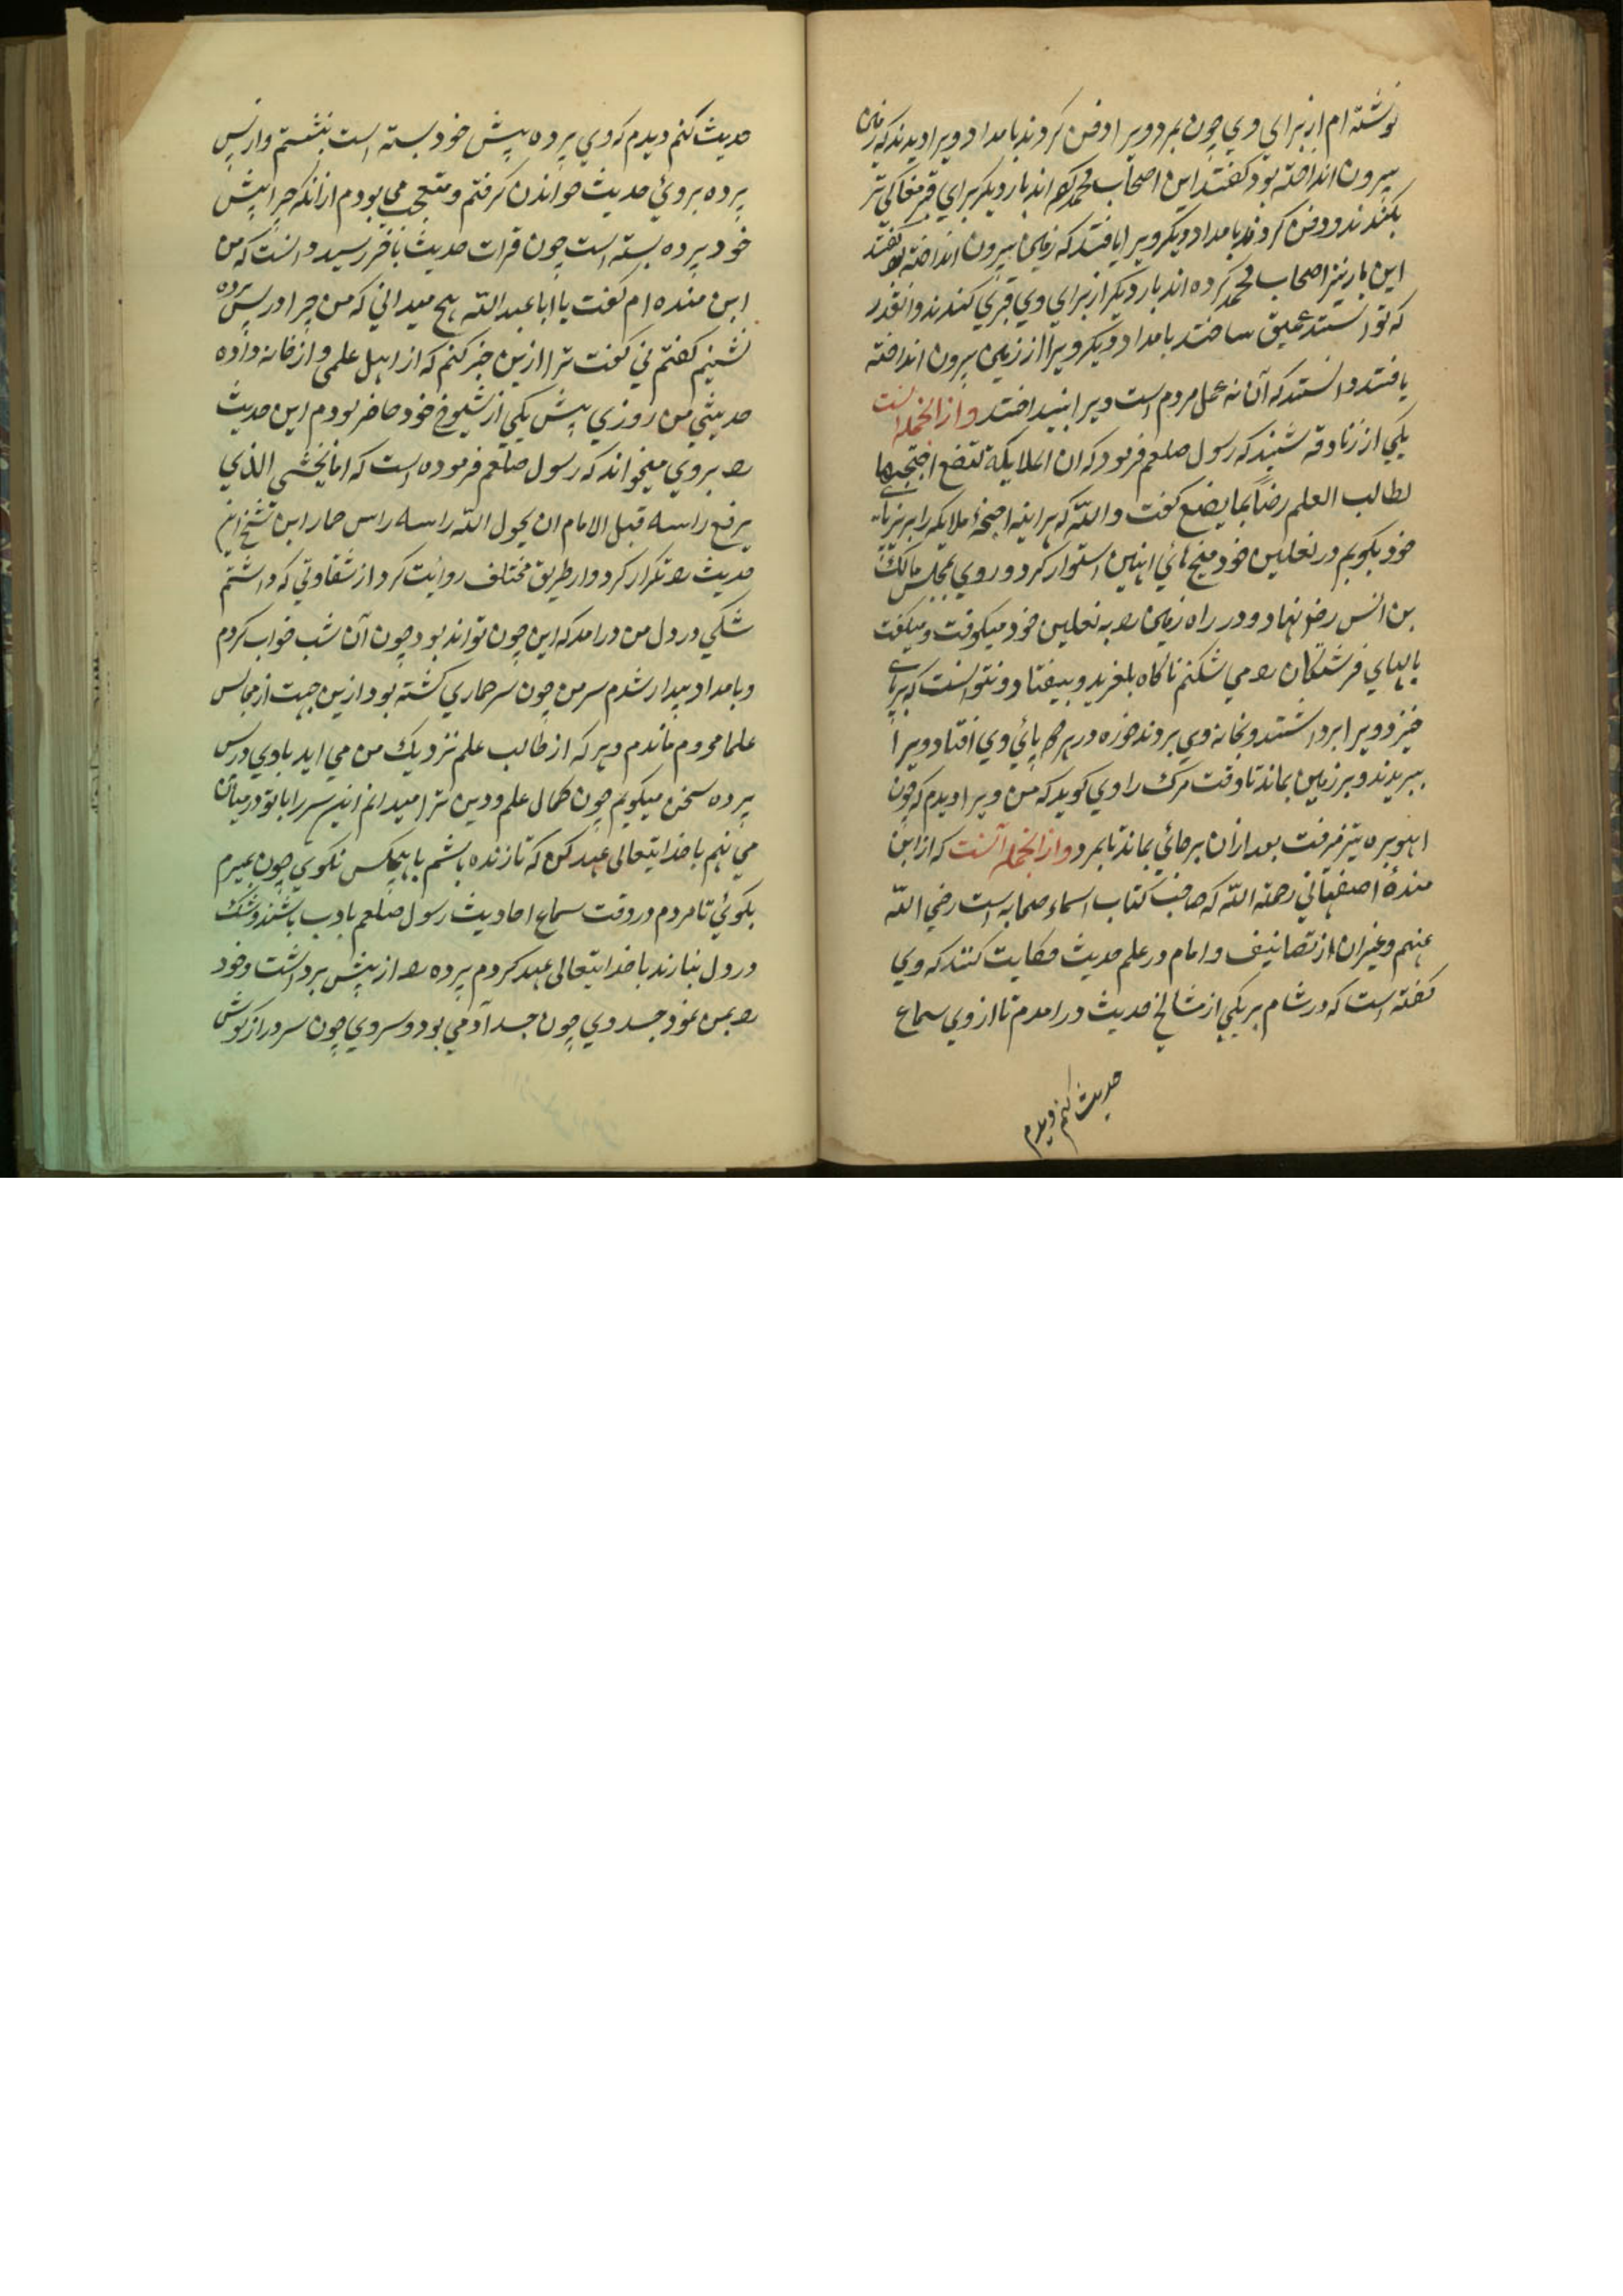 نوشته ام از برای وی چون بمرد ویرا دفن کردند بامداد ویرا دیدند که زمین
بیرون انداخته بود گفتند این اصحاب محمد کرده اند بار دیگر برای قبر مغاکی تر
بکندند و دفن کردند بامداد دیگر ویرا یافتند که زمین بیرون انداخته بود گفتند
این بار نیز اصحاب محمد کرده اند بار دیگر از برای وی قبری کندند و انقدر
که توانستند عمیق ساختند بامداد دیگر ویرا از زمین بیرون انداخته
یافتند دانستند که آن نه عمل مردم است ویرا بینداختند و از انجمله انست
یکی از زنادقه شنید که رسول صلعم فرمود که ان الملایکة لتضع اجنحتها
لطالب العلم رضاً بما یصنع گفت والله که هراینه اجنحهٔ ملایکه را بزیر پای
خود بکوبم در نعلین خود میخ هائی اهنین استوار کرد و روی بمجلس مالک
بن انس رض نهاد و در راه زمین را به نعلین خود میکوفت و میگفت
بالهای فرشتگان را می شکنم ناگاه بلغزید و بیفتاد و نتوانست که برپای
خیزد ویرا برداشتند و بخانه وی بردند خوره در هر دو پائی وی افتاد ویرا
ببریدند و بر زمین بماند تا وقت مرگ راوی گوید که من ویرا دیدم که چون
اهو بره تیز میرفت بعد ازان برجائی بماند تا بمرد و از انجمله آنست که از ابن
مندهٔ اصفهانی رحمة الله که صاحب کتاب اسماء صحابه است رضی الله
عنهم و غیر ان از تصانیف و امام در علم حدیث حکایت کنند که وی
گفته است که در شام بر یکی از مشایخ حدیث درامدم تا از وی سماع
حدیث کنم دیدم
حدیث کنم دیدم که وی پرده پیش خود بسته است بنشستم و از پس
پرده بروئ حدیث خواندن گرفتم و متعجب می بودم از انکه چرا پیش
خود پرده بسته است چون قرات حدیث باخر رسید دانست که من
ابن منده ام گفت یا ابا عبد الله هیچ میدانی که من چرا در پس پرده
نشینم گفتم نی گفت ترا ازین خبر کنم که از اهل علمی و از خانه واده
حدیثی من روزی پیش یکی از شیوخ خود حاضر بودم این حدیث
را بروی میخواند که رسول صلعم فرموده است که اما یخشی الذی
یرفع راسه قبل الامام ان یحول الله راسه راس حمار ابن شیخ این
حدیث را تکرار کرد و از طریق مختلف روایت کرد از شقاوتی که داشتم
شکی در دل من درامد که این چون تواند بود چون آن شب خواب کردم
و بامداد بیدار شدم سر من چون سر حماری گشته بود ازین جهت از مجالس
علما محروم ماندم و هر که از طالب علم نزدیک من می اید با وی در پس
پرده سخن میگویم چون کمال علم و دین ترا میدانم این سر را با تو در میان
می نهم با خدایتعالی عهد کن که تا زنده باشم با هیچکس نکوی چون بمیرم
بگوئی تا مردم در وقت سماع احادیث رسول صلعم بادب باشند و شک
در دل نیارند با خدایتعالی عهد کردم پرده را از پیش برداشت و خود
را بمن نمود جسد وی چون جسد آدمی بود و سر وی چون سر دراز گوش